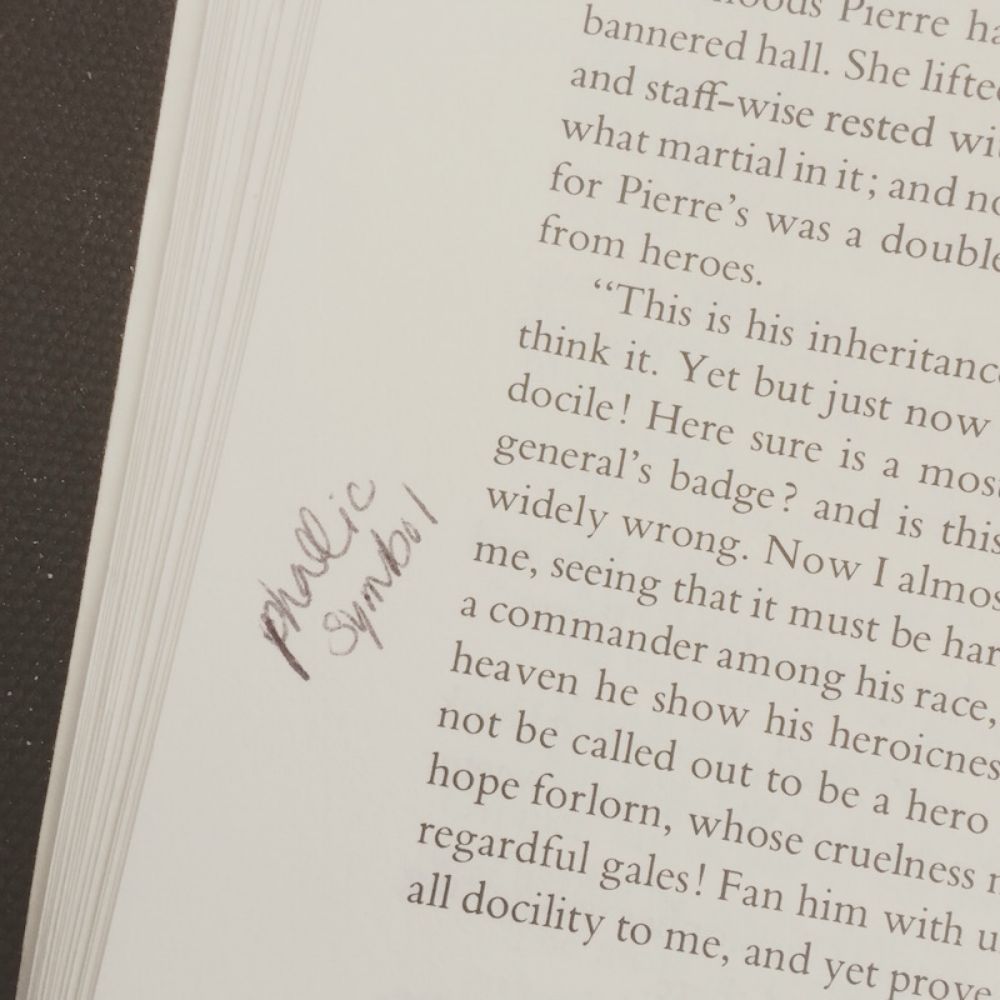 Pierre
bannered hall. She lifted
and staff-wise rested
what martial in it; and
for Pierre's was a double
from heroes.
“This is his inheritance
think it. Yet but just now
docile! Here sure is a most
general's badge? and is this
widely wrong. Now I almos
me, seeing that it must be har
a commander among his race,
heaven he show his heroicnes
not be called out to be a hero
hope forlorn, whose cruelness
regardful gales! Fan him with u
all docility to me, and yet prove
phallic
symbol